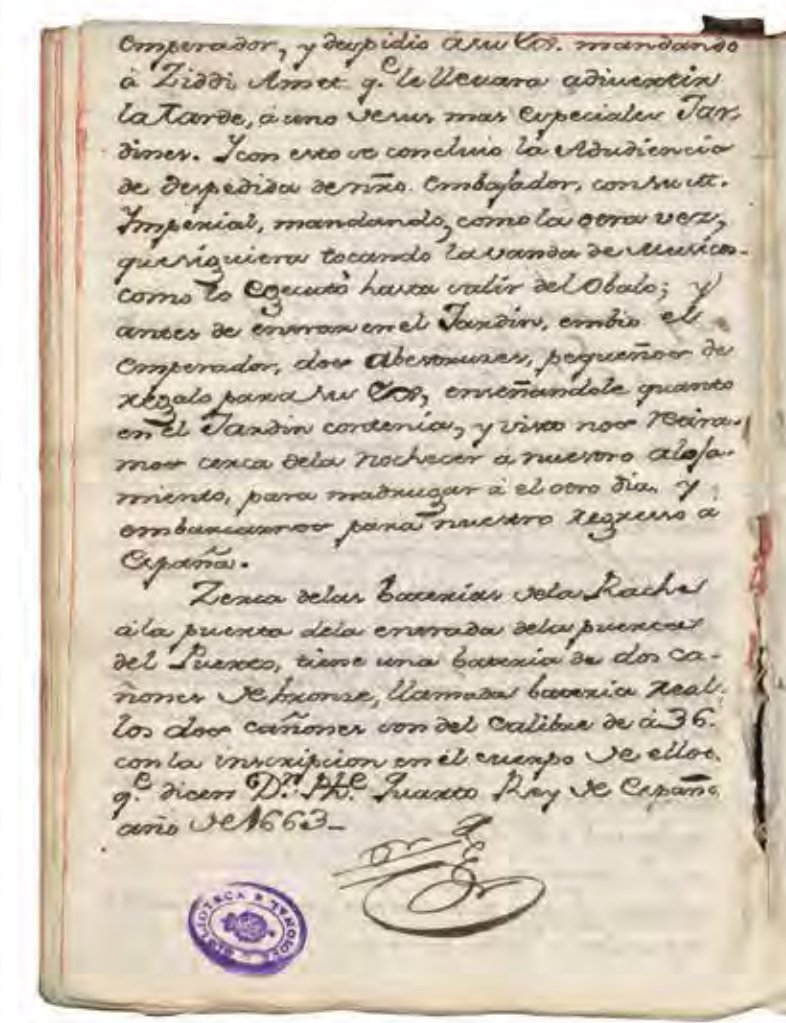 Emperador, y despidio a su Exª. mandando
à Ziddi Amet q.e le llevara a divertir
la Tarde, à uno de sus mas especiales Jar,
dines. Y con esto se concluio la Adudiencia
de Despedida de nrõ. Embajador, con su M.
Imperial, mandando, como la otra vez,
que siguiera tocando la vanda de Musicos
como lo Egecutò hasta salir del Obalo; y
antes de entrar en el Jardin, embio el
Emperador, dos Abestruzes, pequeños de
regalo para su Exª, enseñandole quanto
en el Jardin contenia, y visto nos Retira-
mos cerca dela Nochecer a nuestro aloja-
miento, para madrugar à el otro dia, y
embarcarnos para nuestro regresso a
España.
Zerca delas baterias dela Rache
à la puerta dela entrada dela puerta
del Puerto, tiene una bateria de dos ca-
ñones de bronse, llamada bateria Real.
los dos cañones son del Calibre de à 36.
con la inscripcion en el cuerpo de ellos.
q.e dicen D.n Ph.e Quarto Rey de España
año de 1663-
BIBLIOTECA NACIONAL